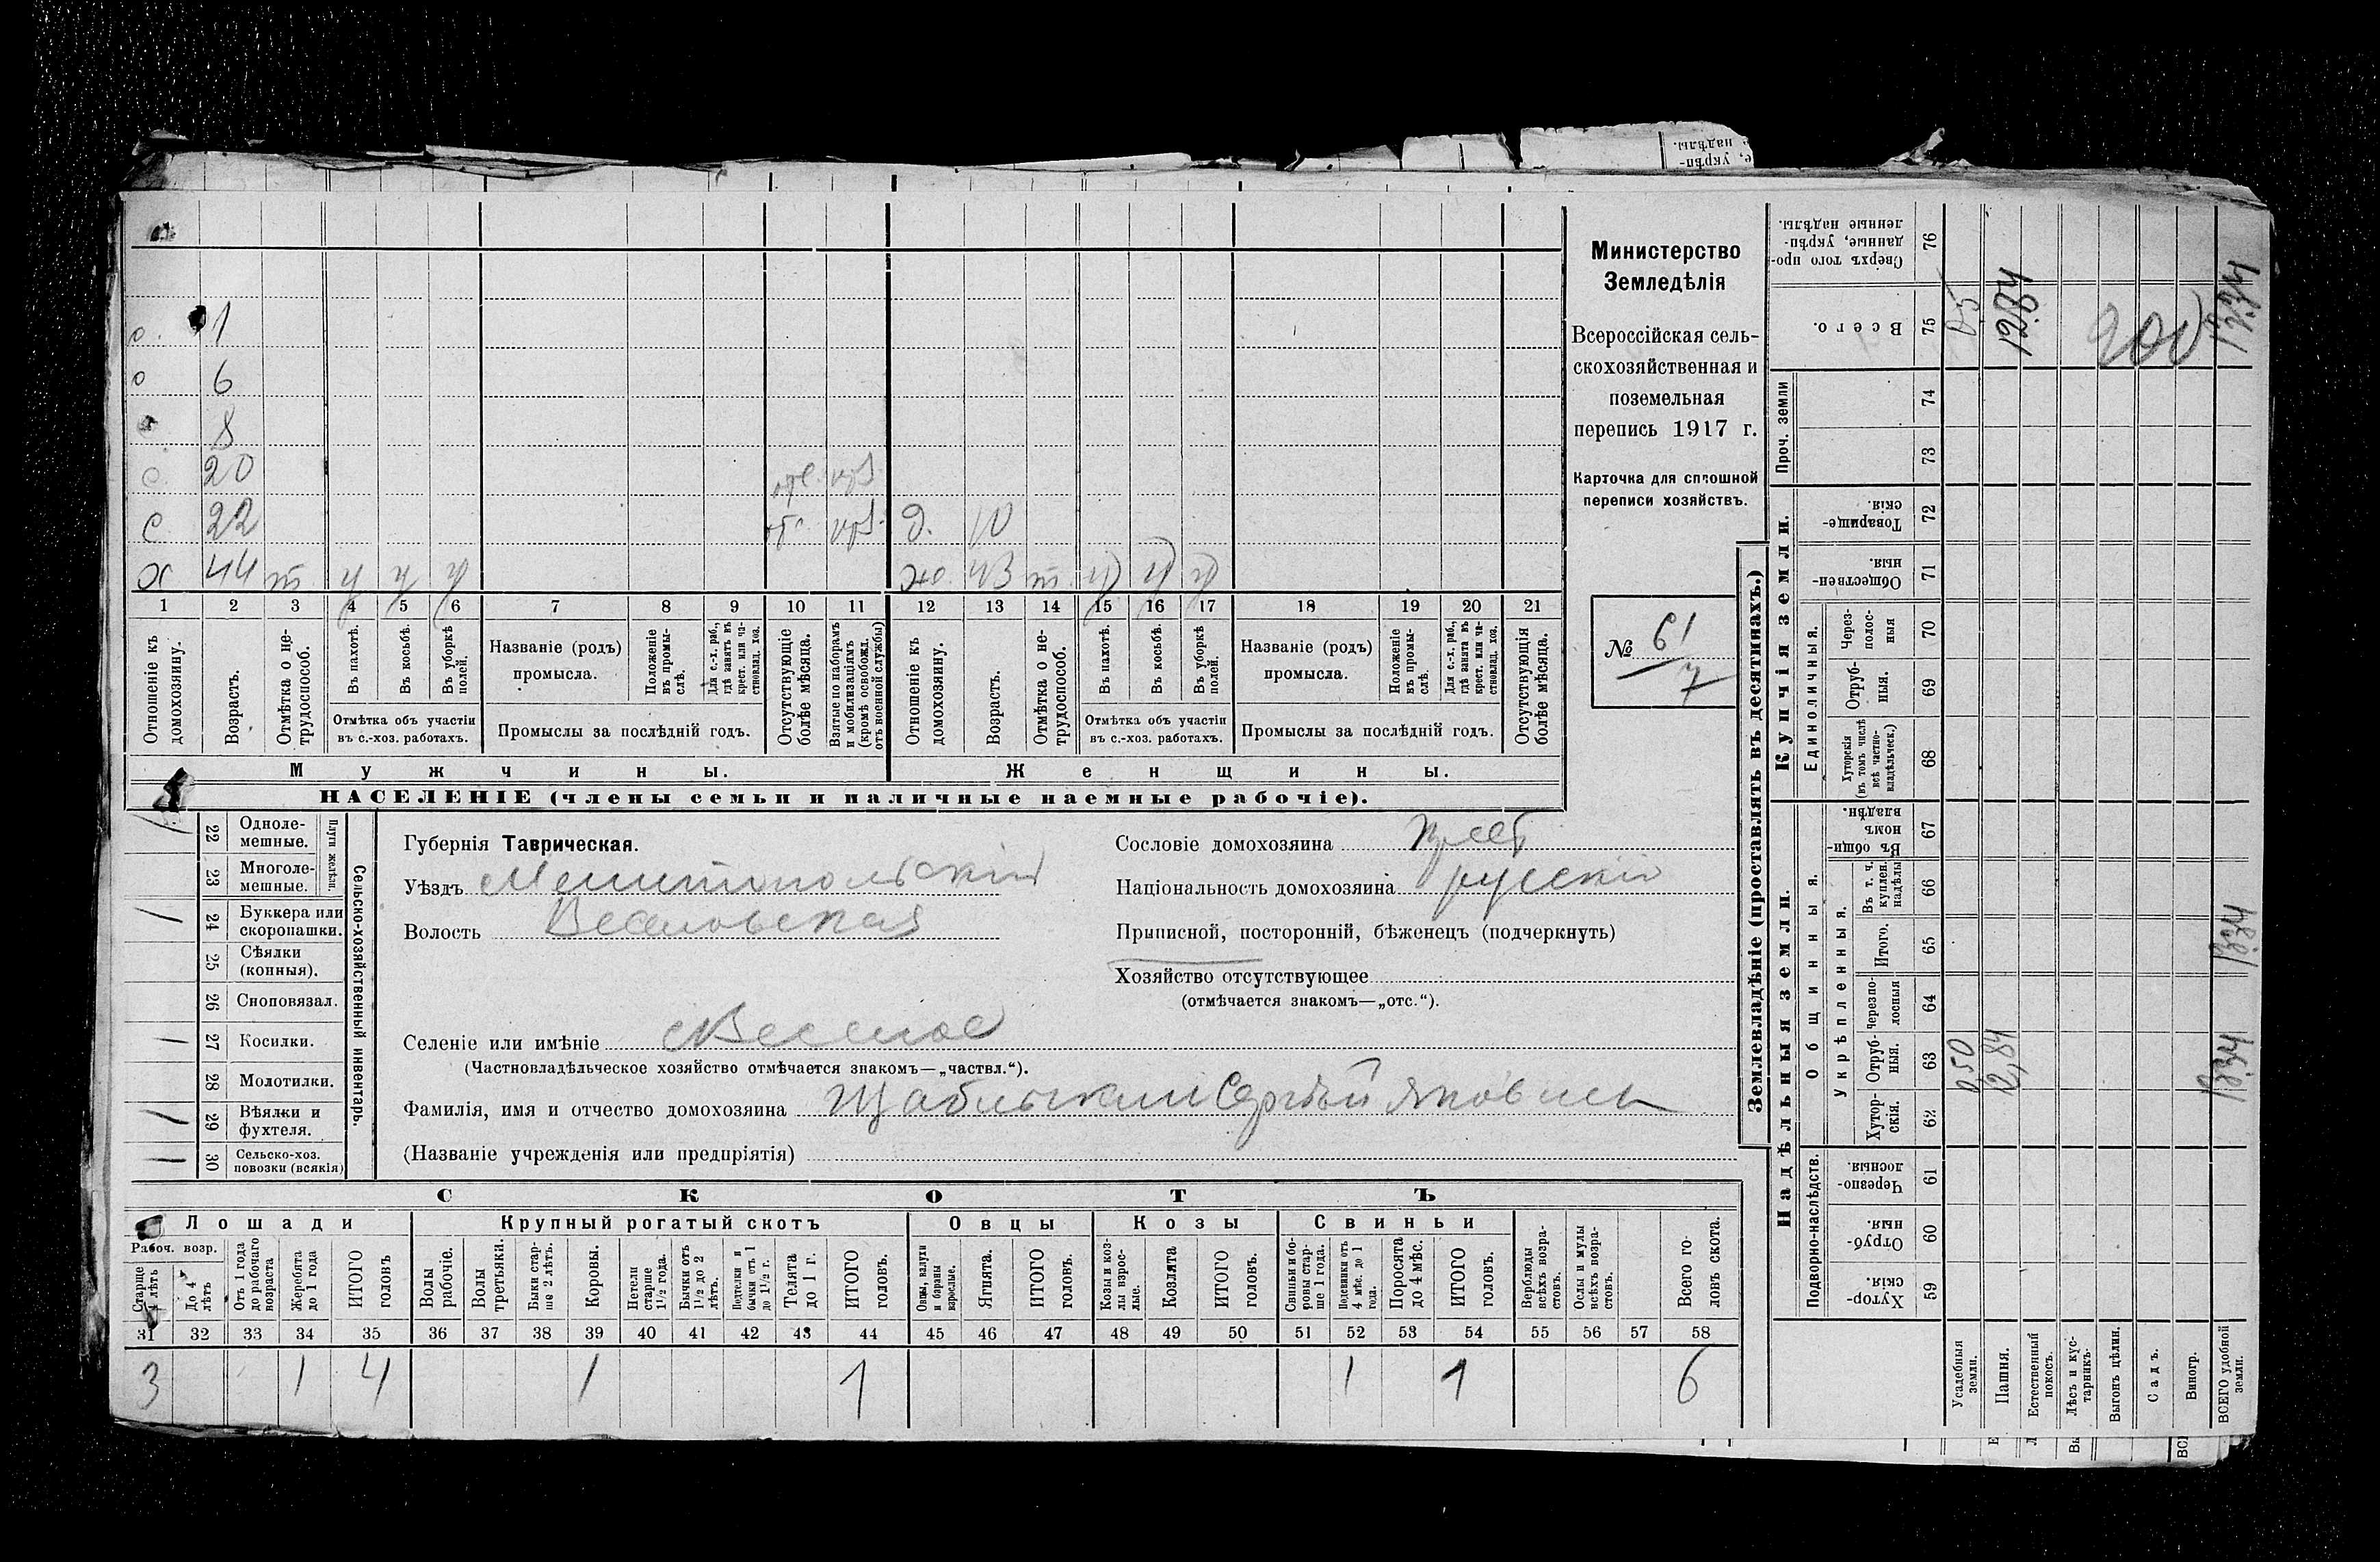 е,
укрѣп-
надѣлы.
Министерство
Земледѣлія
Всероссійская сель-
скохозяйственная и
поземельная
перепись 1917 г.
Карточка для сплошной
переписи хозяйствъ.
№ 61
7
о. 1
о 6
с 8
с. 20
с. 22 д. 10
х 44 т у у у жо 43 т у у у
1 2 3 4 5 6 7 8 9 10 11 12 13 14 15 16 17 18 19 20 21
Отношеніе къ домохозяину.
Возрастъ.
Отмѣтка о не-трудоспособ.
Въ пахотѣ.
Въ косьбѣ.
Въ уборкѣ полей.
Отмѣтка объ участіи
въ с.-хоз. работахъ.
Названіе (родъ)
промысла.
Положеніе въ промы-слѣ.
Для с.-х. раб., гдѣ занятъ въ крест. или ча-стновлад. хоз.
Промыслы за послѣдній годъ.
Отсутствующіе болѣе мѣсяца.
Взятые по наборамъ и мобилизаціямъ (кромѣ освобожд. отъ военной службы)
Отношеніе къ домохозяину.
Возрастъ.
Отмѣтка о не-трудоспособ.
Въ пахотѣ.
Въ косьбѣ.
Въ уборкѣ полей.
Отмѣтка объ участіи
въ с.-хоз. работахъ.
Названіе (родъ)
промысла.
Положеніе въ промы-слѣ.
Для с.-х. раб., гдѣ занята въ крест. или ча-стновлад. хоз.
Промыслы за послѣдній годъ.
Отсутствующія болѣе мѣсяца.
Мужчины. Женщины.
НАСЕЛЕНІЕ (члены семьи и наличные наемные рабочіе).
Сельско-хозяйственный инвентарь.
Плуги желѣзн.
1 22 Одноле-
мешные.
23 Многоле-
мешные.
1 24 Буккера или
скоропашки.
25 Сѣялки
(конныя).
26 Сноповязал.
1 27 Косилки.
28 Молотилки.
1 29 Вѣялки и
фухтеля.
1 30 Сельско-хоз.
повозки (всякія)
Губернія Таврическая.
Уѣздъ Мелитопольскій
Волость Веселовская
Сословіе домохозяина крест
Національность домохозяина русскій
Приписной, посторонній, бѣженецъ (подчеркнуть)
Хозяйство отсутствующее
(отмѣчается знакомъ—„отс.“).
Селеніе или имѣніе с Веселое
(Частновладѣльческое хозяйство отмѣчается знакомъ—„частвл.“).
Фамилія, имя и отчество домохозяина Сергѣй Яковлев
(Названіе учрежденія или предпріятія)
СКОТЪ
Лошади Крупный рогатый скотъ Овцы Козы Свиньи
Рабоч. возр.
Старше 4 лѣтъ
До 4 лѣтъ
Отъ 1 года до рабочаго возраста
Жеребята до 1 года
ИТОГО головъ
Волы рабочіе.
Волы третьяки.
Быки стар-ше 2 лѣтъ.
Коровы.
Нетели старше 1½ года.
Бычки отъ 1½ до 2 лѣтъ.
Подтелки и бычки отъ 1 до 1½ г.
Телята до 1 г.
ИТОГО головъ.
Овцы, валухи и бараны взрослые.
Ягнята.
ИТОГО головъ.
Козы и коз-лы взрос-лые.
Козлята
ИТОГО головъ.
Свиньи и бо-ровы стар-ше 1 года.
Подсвинки отъ 4 мѣс. до 1 года.
Поросята до 4 мѣс.
ИТОГО головъ.
Верблюды всѣхъ возра-стовъ.
Ослы и мулы всѣхъ возра-стовъ.
Всего го-ловъ скота.
31 32 33 34 35 36 37 38 39 40 41 42 43 44 45 46 47 48 49 50 51 52 53 54 55 56 57 58
3 1 4 1 1 1 1 6
Землевладѣніе (проставлять въ десятинахъ.)
Надѣльныя земли. Купчія земли.
Подворно-наслѣдств.
Общинныя.
Укрѣпленныя.
Единоличныя.
Проч. земли
Хутор-скія. 59
Отруб-ныя. 60
Черезпо-лосныя. 61
Хутор-скія. 62
Отруб-ныя. 63
Черезпо-лосныя 64
Итого. 65
Въ т. ч. куплен. надѣлы 66
Въ общи-номъ владѣн. 67
Хуторскія (въ томъ числѣ всѣ частно-владѣльческ.) 68
Отруб-ныя. 69
Через-полос-ныя 70
Обществен-ныя. 71
Товарище-скія. 72
73
74
Всего. 75
Сверхъ того про-данные, укрѣп-ленные надѣлы. 76
Усадебныя земли. 0,50 05
Пашня. 12,84 1284
Естественный покосъ.
Лѣсъ и кус-тарникъ.
Выгонъ цѣлин. 200
Садъ.
Виногр.
ВСЕГО удобной земли. 1334 1334 1334